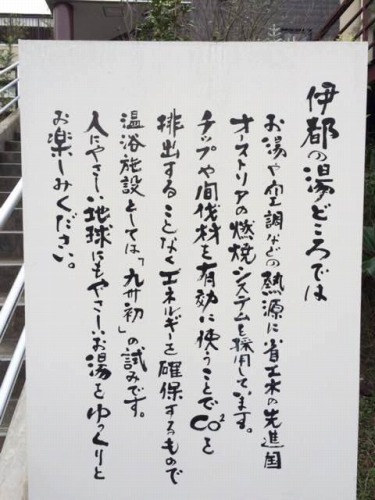 伊都の湯どころでは
お湯や空調などの熱源に省エネの先進国
オーストリアの燃焼システムを採用しています。
チップや間伐材を有効に使うことでCO²を
排出することなくエネルギーを確保するもので
温浴施設としては、「九州初」の試みです。
人にやさしい地球にもやさしいお湯をゆっくりと
お楽しみください。